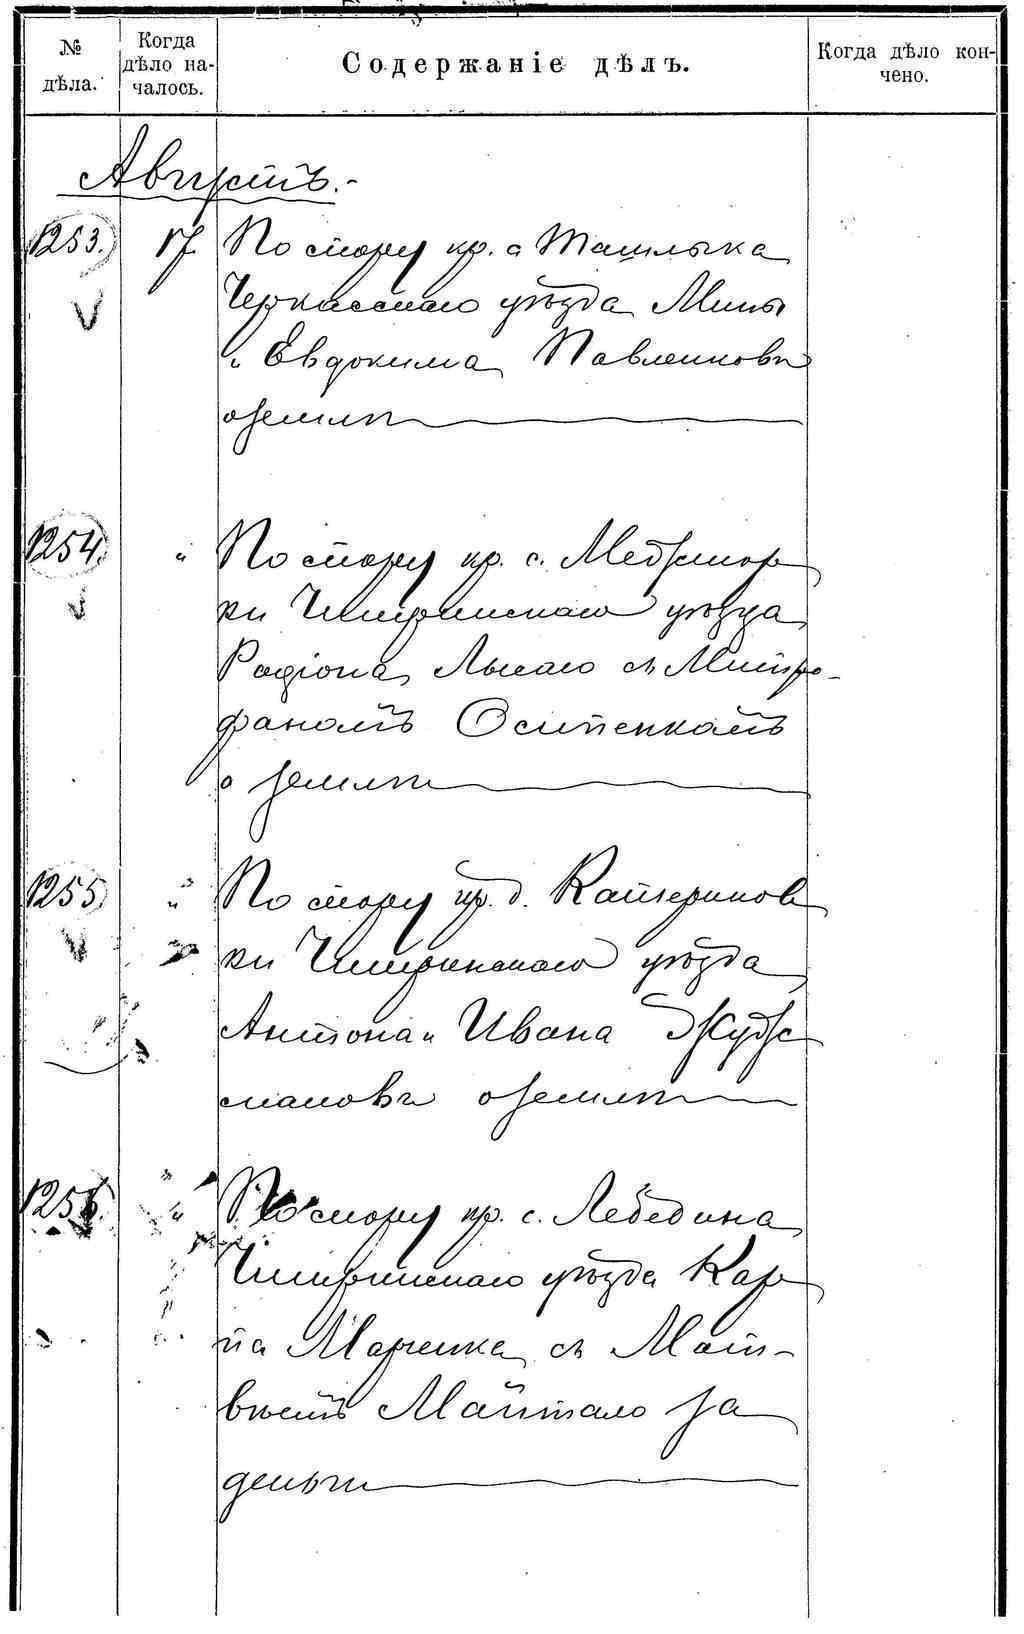 № дѣла.
Когда дѣло началось.
Содержаніе дѣлъ.
Когда дѣло кончено.
Августъ.-
1253. 17 По спору кр. с Ташлыка
Черкасскаго уѣзда Мины
и Евдокима Павленковъ
о землѣ
1254. " По спору кр. с. Медѣ
ки Чигиринскаго уѣзда
Радіона Лысаго съ Митро-
фаномъ Осипенкомъ
о землѣ
1255. " По спору кр. д. Катеринов
ки Чигиринскаго уѣзда
Антона и Ивана
о землѣ
1256. " По спору кр. с. Лебедина
Чигиринскаго уѣзда Кар
па Марченка съ Мат-
вѣемъ за
деньги